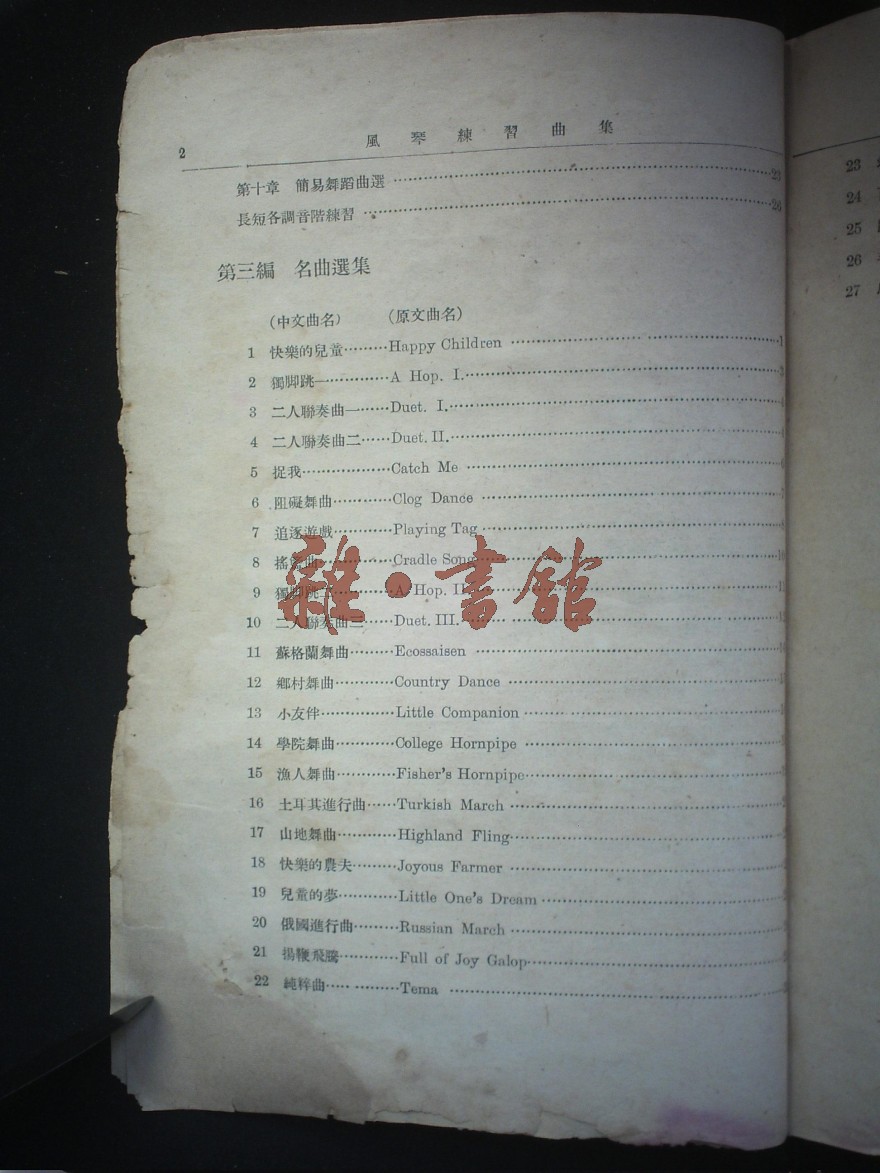 2 風琴練習曲集
第十章 簡易舞蹈曲選 23
長短各調音階練習 26
第三編 名曲選集
(中文曲名) (原文曲名)
1 快樂的兒童 Happy Children 1
2 獨脚跳一 A Hop. I.
3 二人聯奏曲一 Duet. I.
4 二人聯奏曲二 Duet. II.
5 捉我 Catch Me
6 阻礙舞曲 Clog Dance
7 追逐遊戲 Playing Tag
8 搖籃曲 Cradle Song 10
9 獨脚跳二 A Hop. II.
10 二人聯奏曲三 Duet. III.
11 蘇格蘭舞曲 Ecossaisen
12 鄉村舞曲 Country Dance
13 小友伴 Little Companion
14 學院舞曲 College Hornpipe
15 漁人舞曲 Fisher's Hornpipe
16 土耳其進行曲 Turkish March
17 山地舞曲 Highland Fling
18 快樂的農夫 Joyous Farmer
19 兒童的夢 Little One's Dream
20 俄國進行曲 Russian March
21 揚鞭飛騰 Full of Joy Galop
22 純粹曲 Tema
雜·書館
23
24
25
26
27